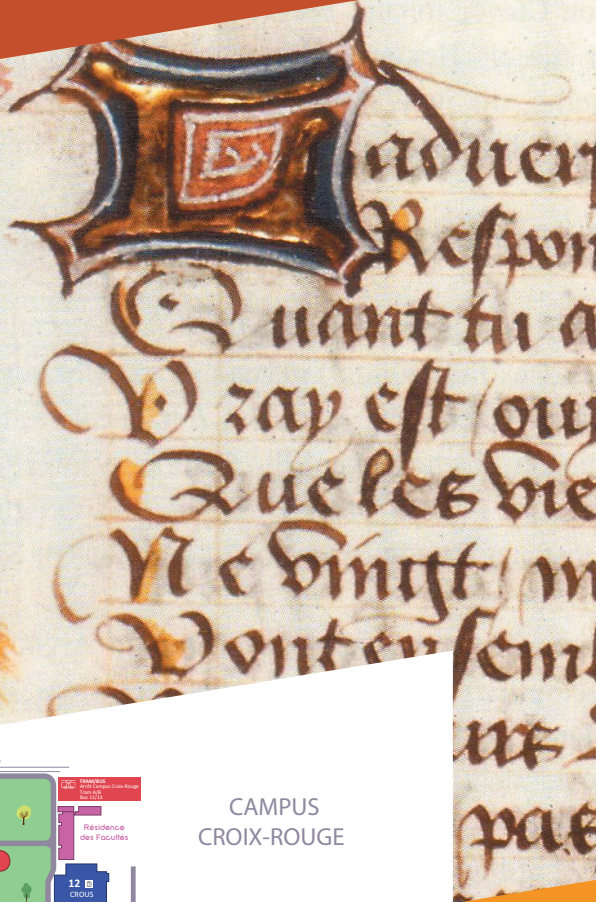 aduerſ
Reſpon
Quant tu a
Vray eſt / ouy
Que les vie
Ne vingt / m
Vont enſeml
urs
pas
TRAM/BUS
Arrêt Campus Croix-Rouge
Tram A/B
Bus 11/13
Résidence
des Facultés
12
CROUS
CAMPUS
CROIX-ROUGE